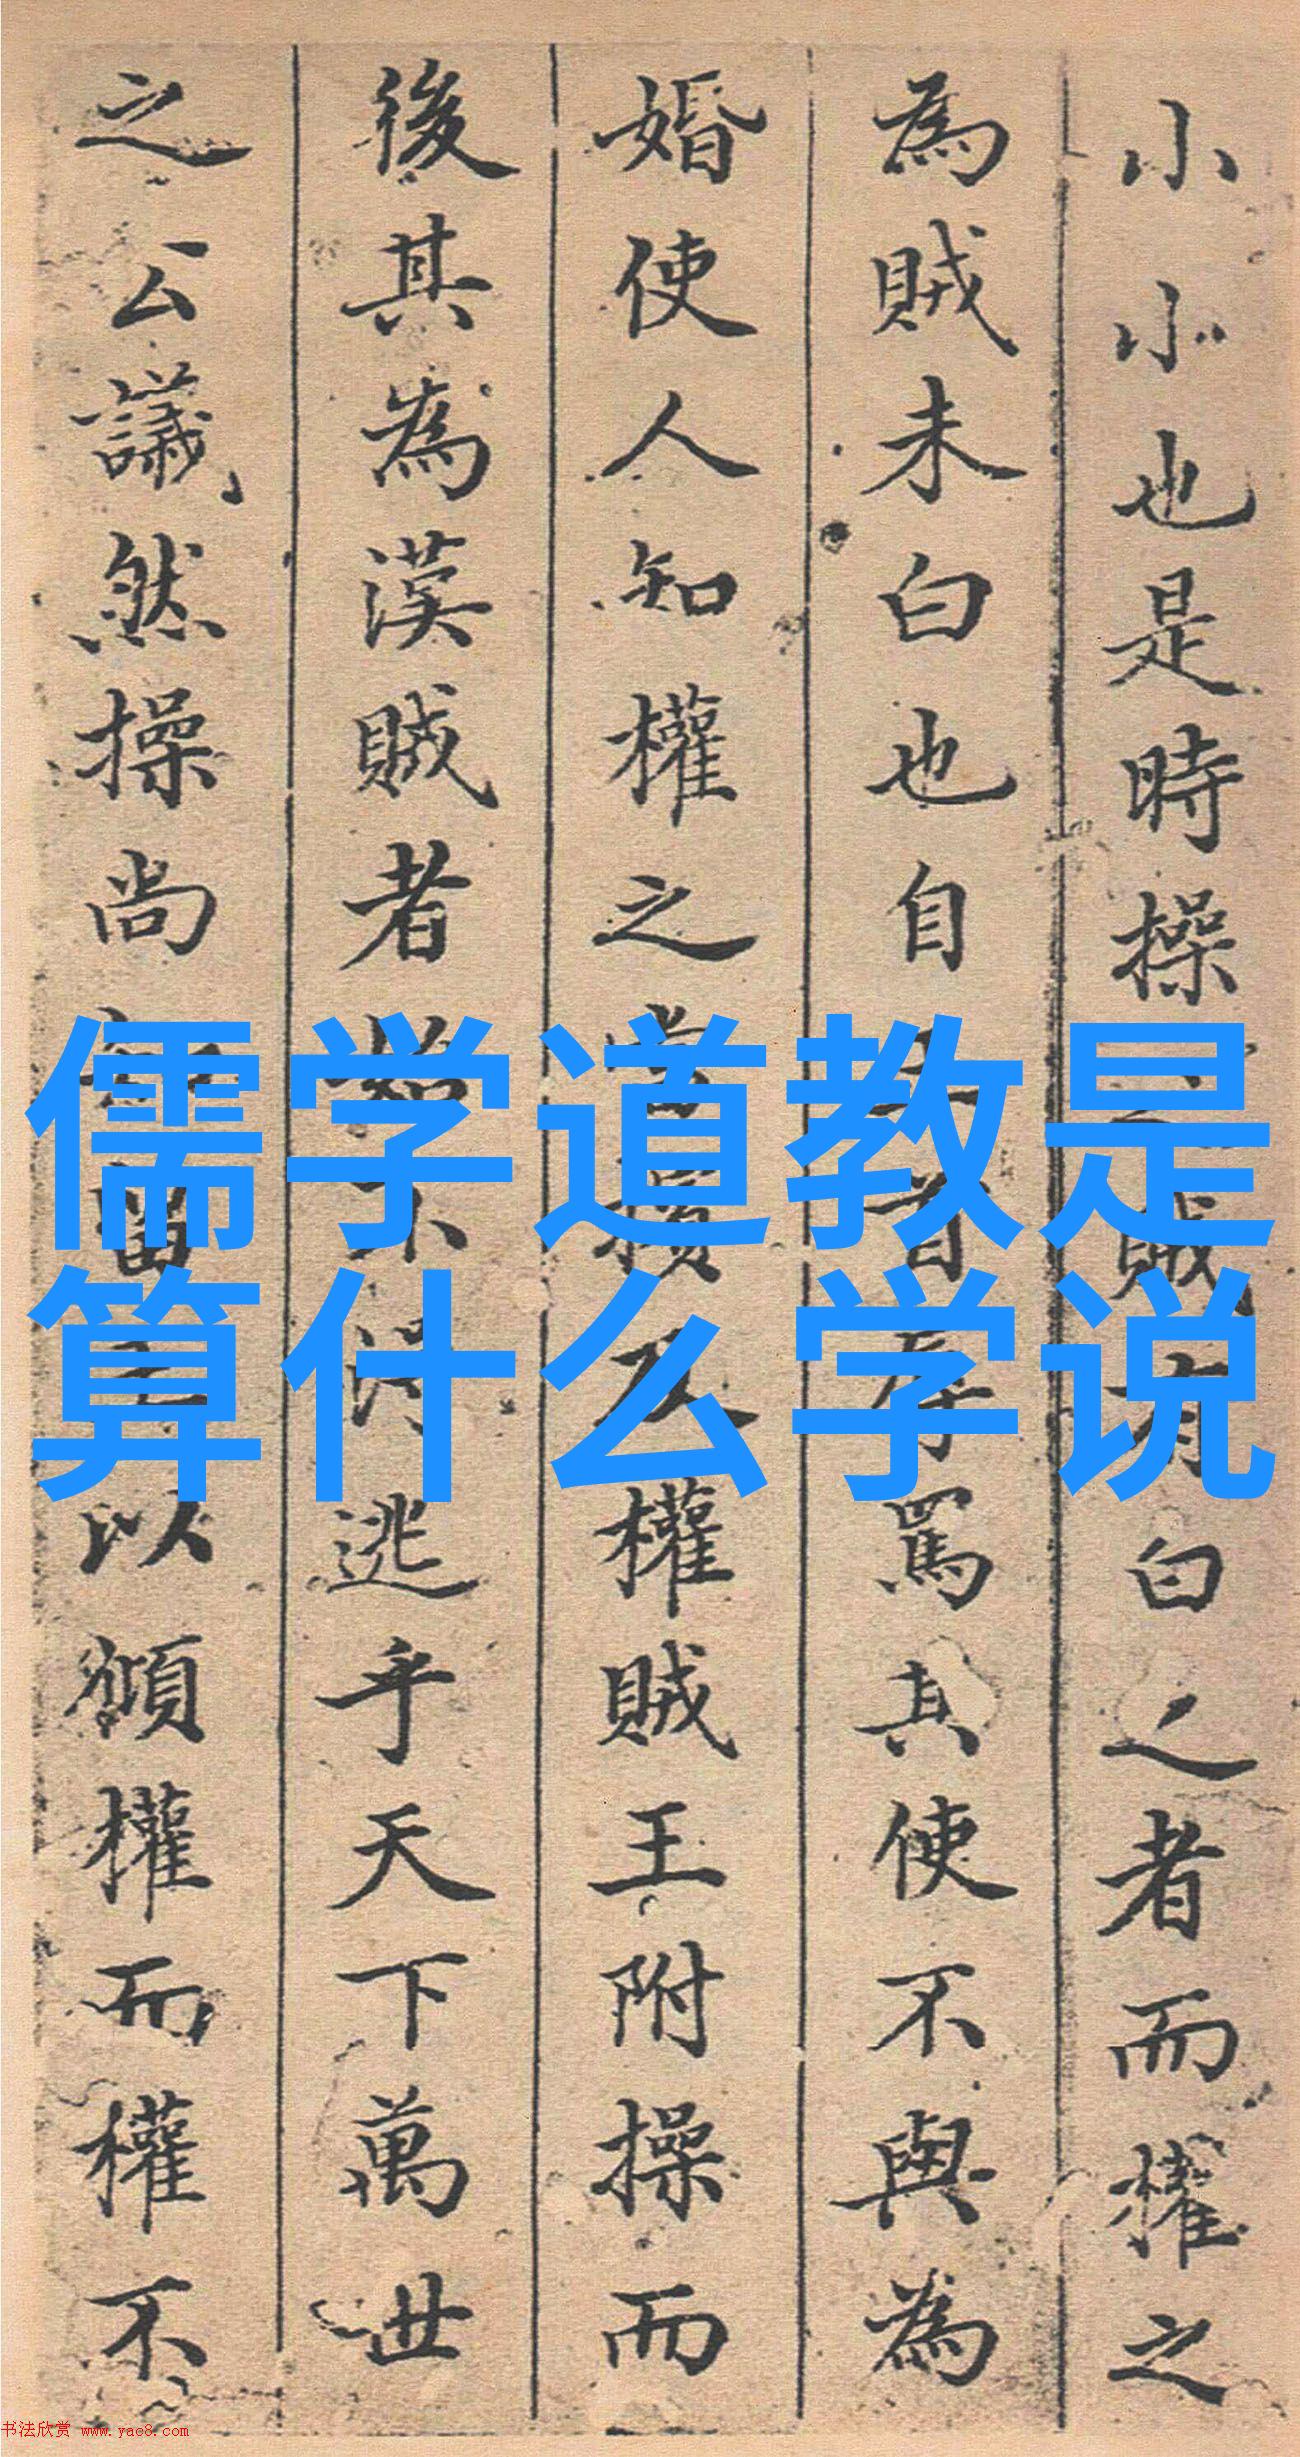 小小也是時操賊有白之者而權之
為賊未白也自罵其使不與為
婚使人知權之權賊王附操而
後其為漢賊者不逃乎天下萬世
之公議然操尚以權而權不
儒学道教是
算什么学说
书法欣赏 www.yac8.com